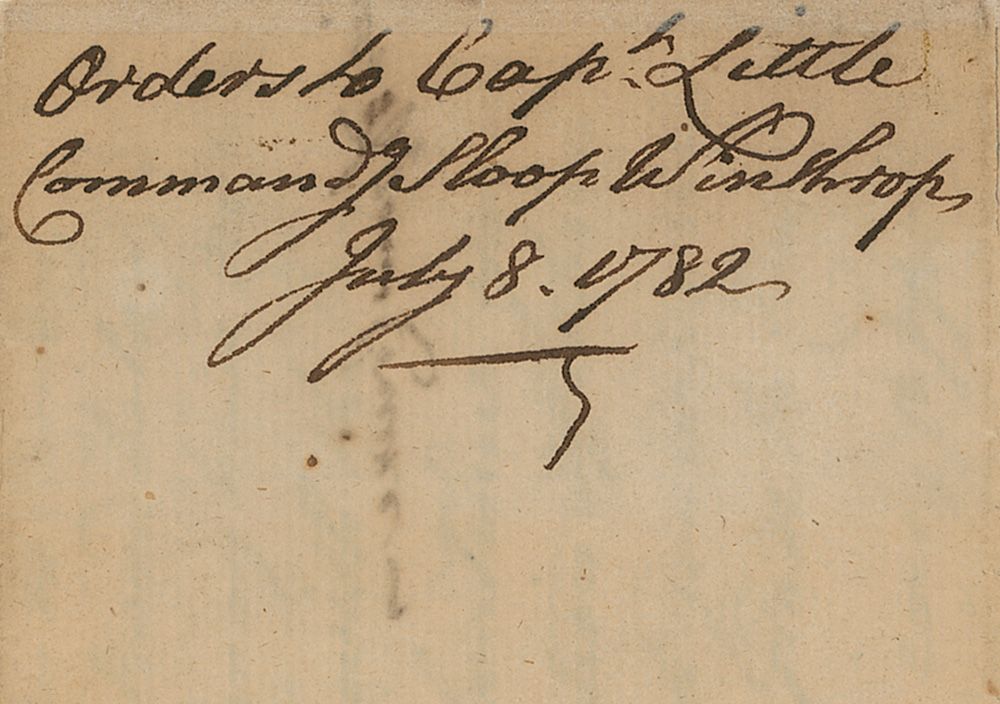 Orders to Capt. Little
Commandg Sloop Winthrop
July 8. 1782